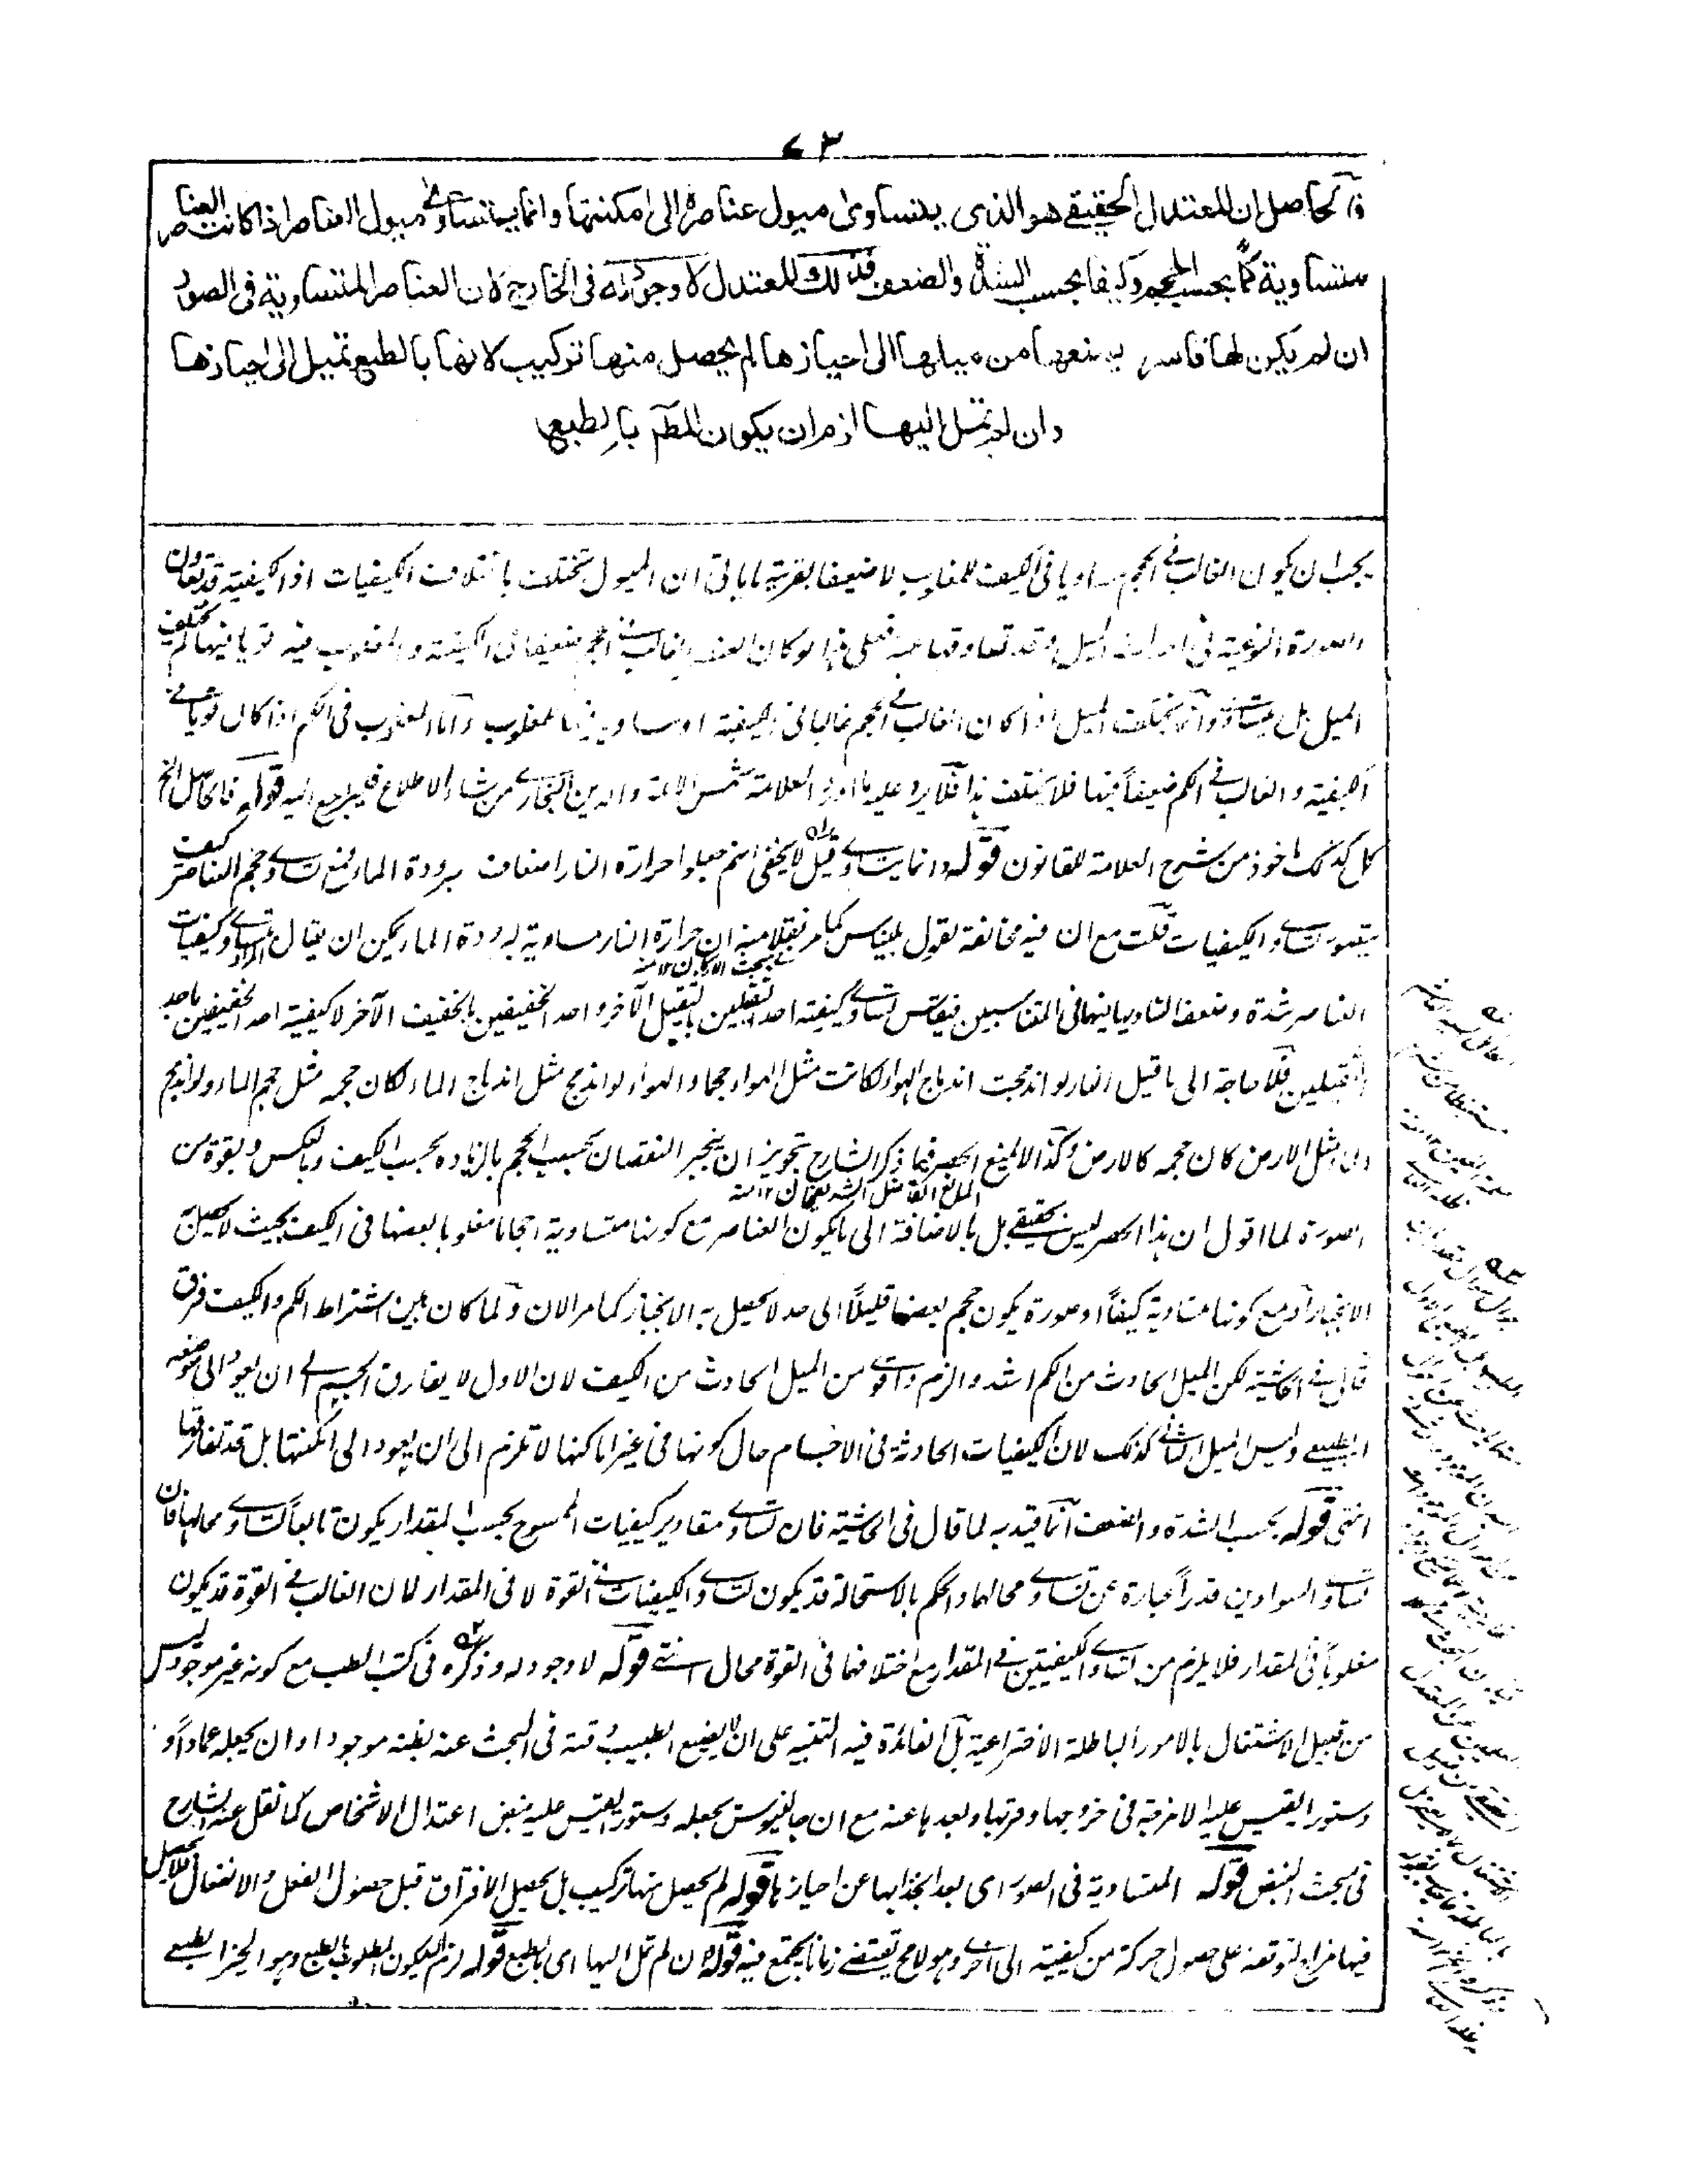 ٧٣
فالحاصل ان المعتدل الحقيقي هو الذي يتساوى ميول عناصره الى امكنتها وانما يتساوى ميول العناصر اذا كانت العناصر
متساوية كمًّا بحسب الحجم وكيفا بحسب الشدة والضعف فذلك المعتدل لا وجود له في الخارج لان العناصر المتساوية في الصور
ان لم يكن لها قاسر يمنعها من ميلها الى احيازها لم يحصل منها تركيب لانها بالطبع تميل الى احيازها
وان لم تمل اليها لزم ان يكون المطلوب بالطبع
يجب ان يكون الغالب في الحجم مساويا في الكيف للمغلوب لا ضعيفا بقرينة ما ياتي ان الميول تختلف باختلاف الكيفيات اذ الكيفية قد تعاون
الصورة النوعية في احداث الميل وقد تعاوقها عنه فعلى هذا لو كان العنصر الغالب في الحجم ضعيفا في الكيفية والمغلوب فيه قويا فيها لم يختلف
الميل بل يتساوى وانما يختلف الميل اذا كان الغالب في الحجم غالبا في الكيفية او مساويا فيها للمغلوب واما المغلوب في الكم اذا كان قويا في
الكيفية والغالب في الكم ضعيفاً فيها فلا يختلف هذا فلا يرد عليه ما اورد العلامة شمس الائمة والدين البخاري من شاء الاطلاع فليراجع اليه قوله فالحاصل الخ
كل ذلك ماخوذ من شرح العلامة للقانون قوله وانما يتساوى قيل لا يخفى انهم جعلوا حرارة النار اضعاف برودة الماء فمع تساوي حجم العناصر كيف
يتصور تساوي الكيفيات قلت مع ان فيه مخالفة لقول بليناس كما مر نقلا منه ان حرارة النار مساوية لبرودة الماء يمكن ان يقال المراد تساوي كيفيات
في بحث الاركان ١٢ منه
العناصر شدة وضعفا تساويها فيما في المتناسبين فيقاس تساوي كيفية احد الثقيلين بالثقيل الآخر واحد الخفيفين بالخفيف الآخر لا كيفية احد الخفيفين باحد
الثقيلين فلا حاجة الى ما قيل النار لو اندمجت اندماج الهواء لكانت مثل الهواء حجما والهواء لو اندمج مثل اندماج الماء لكان حجمه مثل حجم الماء ولو اندمج
الماء مثل الارض كان حجمه كالارض وكذا لا يمنع الحصر فيما ذكر الشارح تجويز ان ينجبر النقصان بحسب الحجم بالزيادة بحسب الكيف وبالعكس وبقوة من
المانع الفاضل الشريف خان ١٢ منه
الصورة لما اقول ان هذا الحصر ليس بحقيقي بل بالاضافة الى ما يكون العناصر مع كونها متساوية احجاما مغلوبا بعضها في الكيف بحيث لا يحصل به
الانجبار او مع كونها متساوية كيفاً او صورة يكون حجم بعضها قليلاً الى حد لا يحصل به الانجبار كما مر الان ولما كان بين اشتراط الكم والكيف فرق
قال في الحاشية لكن الميل الحادث من الكم اشد والزم واقوى من الميل الحادث من الكيف لان الاول لا يفارق الجسم الى ان يعود الى موضعه
الطبيعي وليس الميل الثاني كذلك لان الكيفيات الحادثة في الاجسام حال كونها في غير اماكنها لا تلزم الى ان يعود الى امكنتها بل قد تفارقها
انتهى قوله بحسب الشدة والضعف انما قيد به لما قال في الحاشية فان تساوي مقادير كيفيات الممسوح بحسب المقدار يكون تابعاً لتساوي محالها فان
تساوي السوادين قدراً عبارة عن تساوي محالها والحكم بالاستحالة قد يكون تساوي الكيفيات في القوة لا في المقدار لان الغالب في القوة قد يكون
مغلوباً في المقدار فلا يلزم من تساوي الكيفيتين في المقدار مع اختلافهما في القوة محال انتهى قوله لا وجود له وذكره في كتب الطب مع كونه غير موجود ليس
من قبيل الاشتغال بالامور الباطلة الاختراعية بل الفائدة فيه التنبيه على ان لا يضيع الطبيب وقته في البحث عنه بظنه موجودا وان يجعله عماداً و
دستورا يقيس عليه الامزجة في خروجها وقربها وبعدها عنه مع ان جالينوس يجعله دستورا يقيس عليه نبض اعتدال الاشخاص كما نقل عنه الشارح
في بحث النبض قوله المتساوية في الصور اي بعد انجذابها عن احيازها قوله لم يحصل منها تركيب بل يحصل الافتراق قبل حصول الفعل والانفعال فلا يحصل
فيها مزاج لتوقفه على حصول حركة من كيفية الى اخرى وهو لا محالة يقتضي زمانا يجتمع فيه قوله وان لم تمل اليها اي بالطبع قوله لزم ان يكون المطلوب بالطبع وهو الحيز الطبيعي